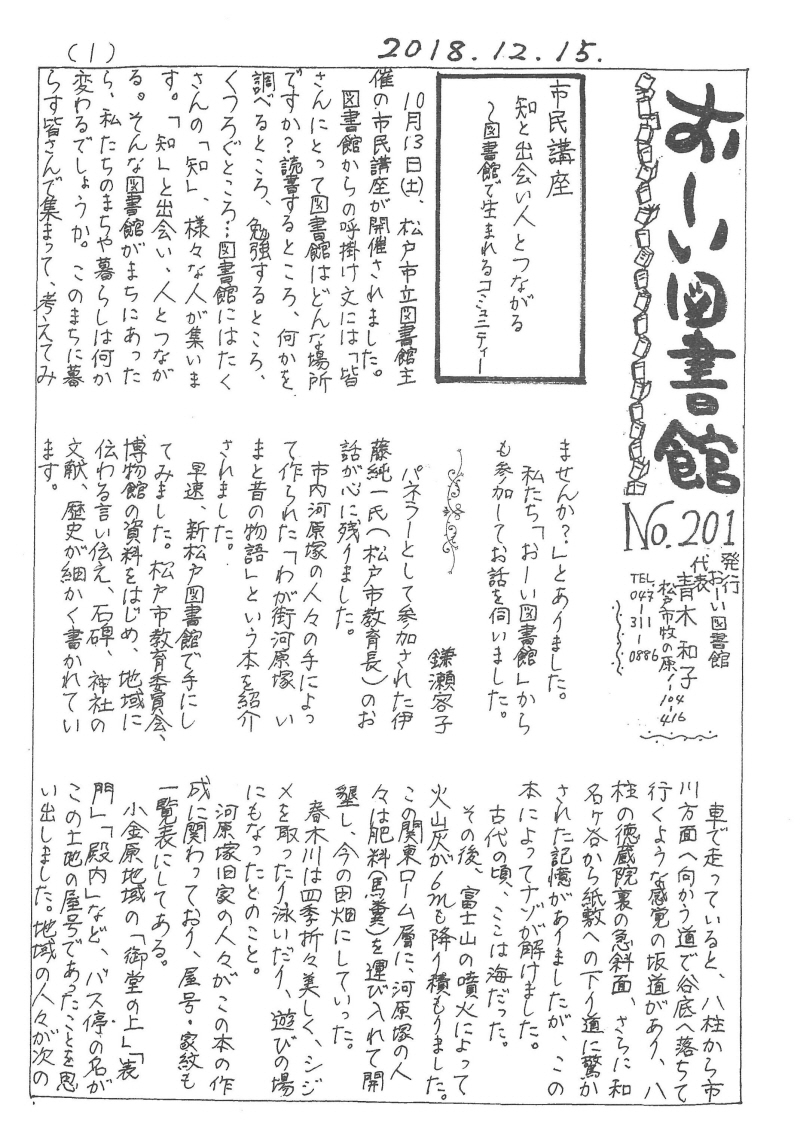 (1)
2018.12.15.
おーい図書館
No.201
発行
おーい図書館
代表
青木和子
松戸市牧の原1-104-416
TEL.
047-
311-
0886
市民講座
知と出会い人とつながる
～図書館で生まれるコミュニティー
10月13日(土)、松戸市立図書館主
催の市民講座が開催されました。
図書館からの呼掛け文には「皆
さんにとって図書館はどんな場所
ですか？読書するところ、何かを
調べるところ、勉強するところ、
くつろぐところ…図書館にはたく
さんの「知」、様々な人が集いま
す。「知」と出会い、人とつなが
る。そんな図書館がまちにあった
ら、私たちのまちや暮らしは何か
変わるでしょうか。このまちに暮
らす皆さんで集まって、考えてみ
ませんか？」とありました。
私たち「おーい図書館」から
も参加してお話を伺いました。
鎌瀬容子
パネラーとして参加された伊
藤純一氏へ松戸市教育長)のお
話が心に残りました。
市内河原塚の人々の手によっ
て作られた「わが街河原塚 い
まと昔の物語」という本を紹介
されました。
早速、新松戸図書館で手にし
てみました。松戸市教育委員会、
博物館の資料をはじめ、地域に
伝わる言い伝え、石碑、神社の
文献、歴史が細かく書かれてい
ます。
車で走っていると、八柱から市
川方面へ向かう道で谷底へ落ちて
行くような感覚の坂道があり、八
柱の徳蔵院裏の急斜面、さらに和
名ヶ谷から紙敷への下り道に驚か
された記憶がありましたが、この
本によってナゾが解けました。
古代の頃、ここは海だった。
その後、富士山の噴火によって
火山灰が6mも降り積もりました。
この関東ローム層に、河原塚の人
々は肥料(馬糞)を運び入れて開
墾し、今の田畑にしていった。
春木川は四季折々美しく、シジ
メを取ったり泳いだり、遊びの場
にもなったとのこと。
河原塚旧家の人々がこの本の作
成に関わっており、屋号・家紋も
一覧表にしてある。
小金原地域の「御堂の上」「表
門」「殿内」など、バス停の名が
この土地の屋号であったことを思
い出しました。地域の人々が次の